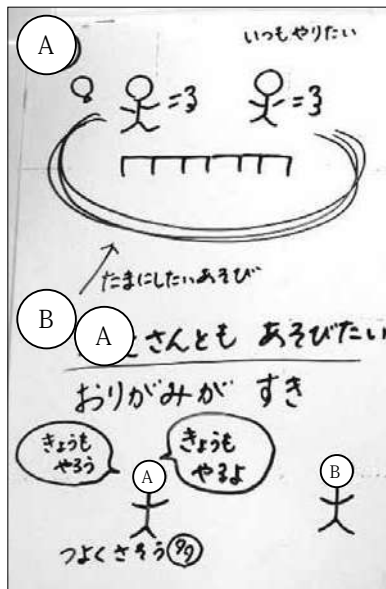 A
いつもやりたい
たまにしたいあそび
B
A さんとも あそびたい
おりがみが すき
きょうも
やろう
きょうも
やるよ
A
B
つよくさそう